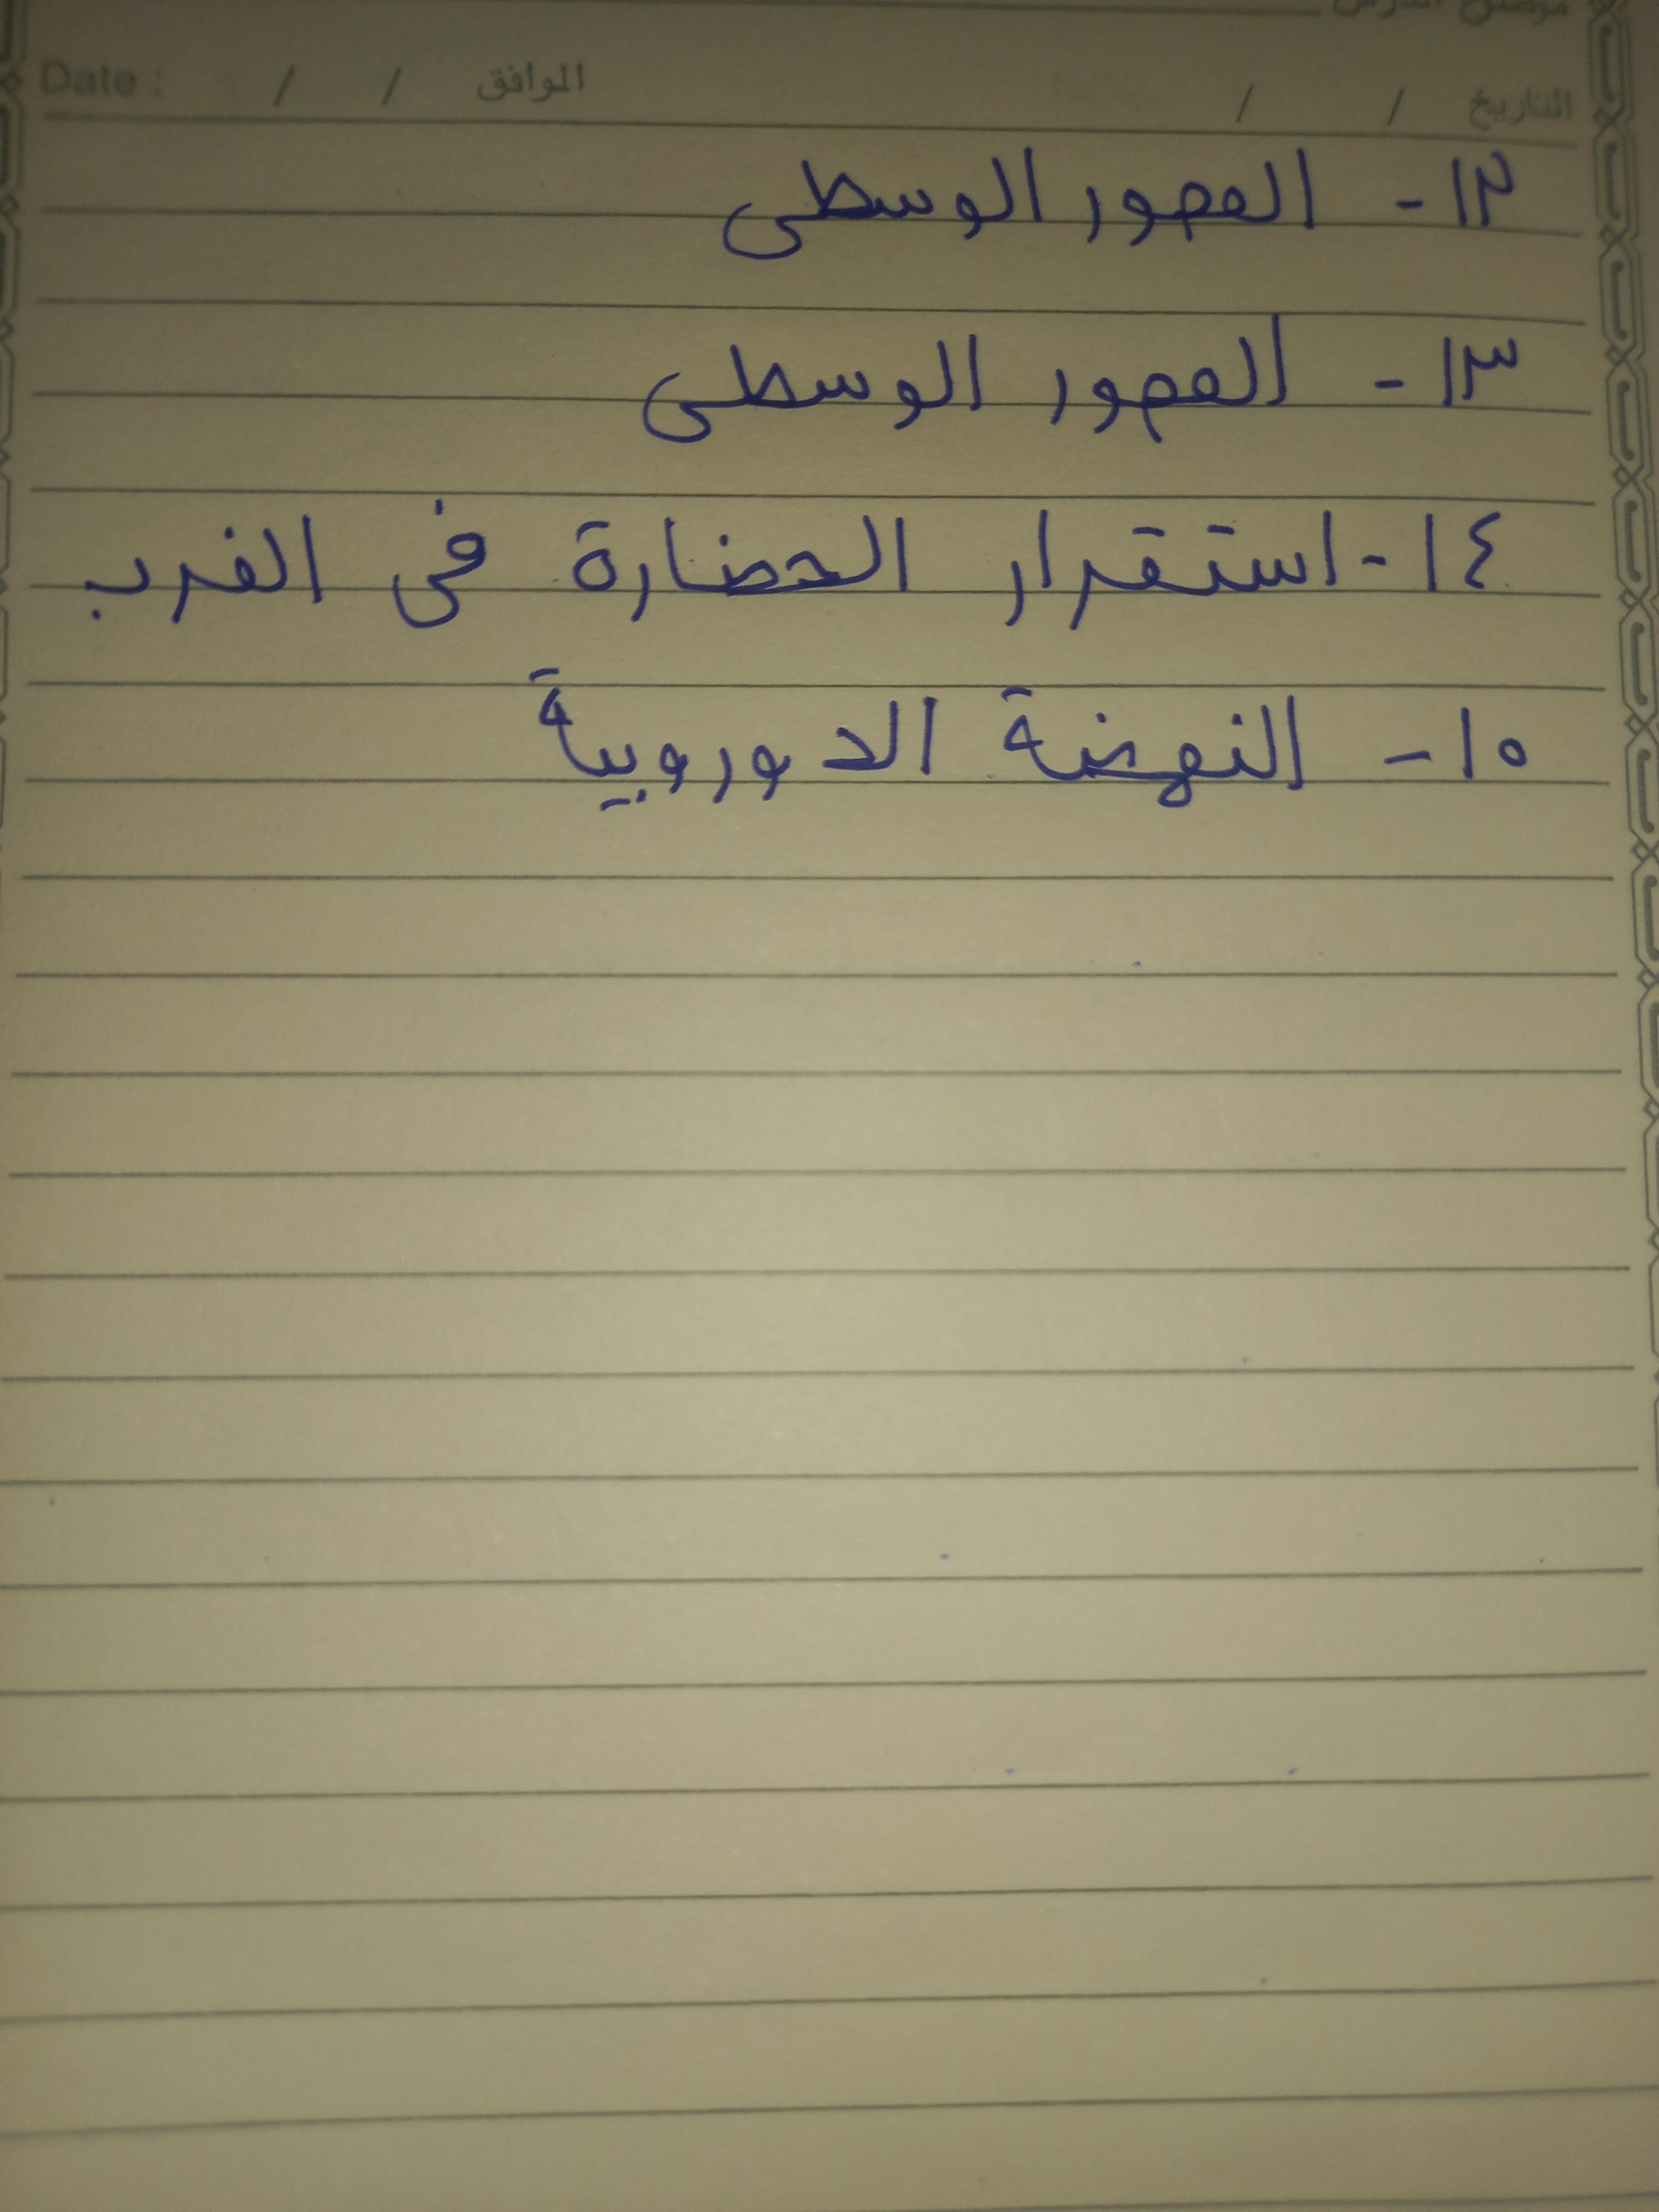 موضوع الدرس
التاريخ / / الموافق / / Date :
١٢- العصور الوسطى
١٣- العصور الوسطى
١٤- استقرار الحضارة فى الغرب
١٥- النهضة الاوروبية